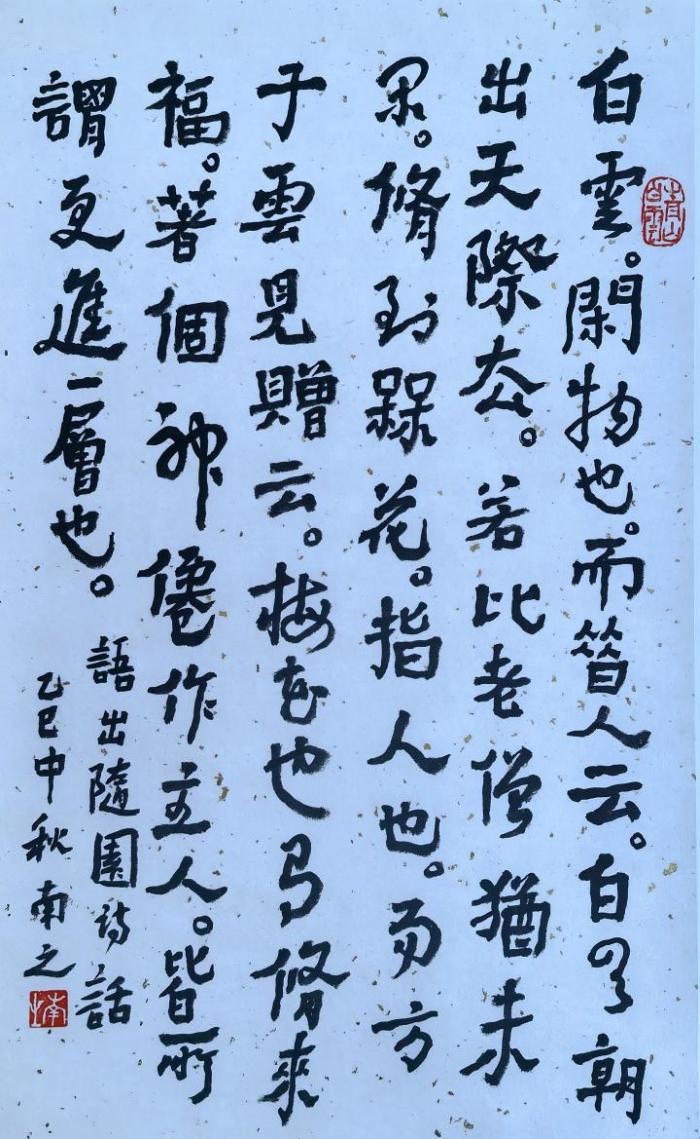 白雲。閑物也。而簪人云。白雲朝
出天際去。若比老僧猶未
閑。脩到槑花。指人也。而方
子雲見贈云。梅花也有脩來
福。著個神僊作主人。皆所
謂更進一層也。
語出隨園詩話
乙巳中秋南之
南之